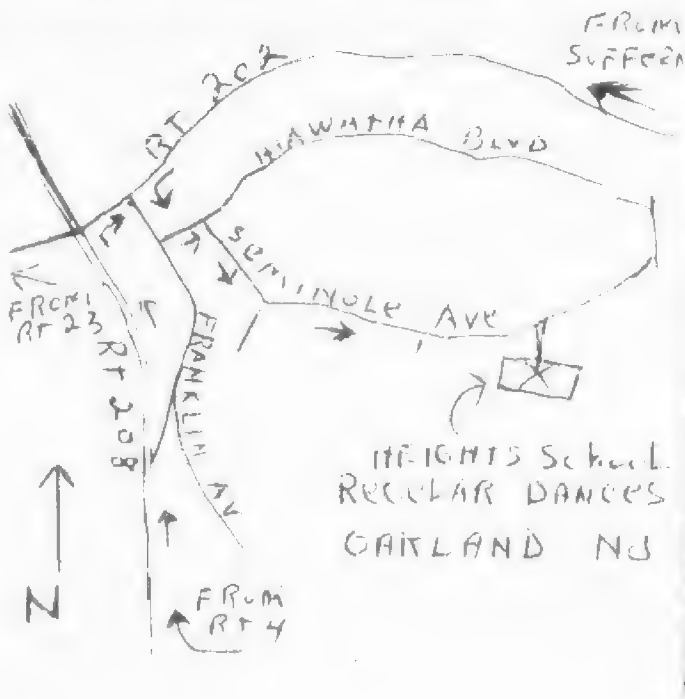 FROM
SUFFERN
RT 202
HIAWATHA BLVD
SEMINOLE AVE
FROM
RT 23
RT 208
FRANKLIN AV
HEIGHTS School
REGULAR DANCES
OAKLAND NJ
N
FROM
RT 4